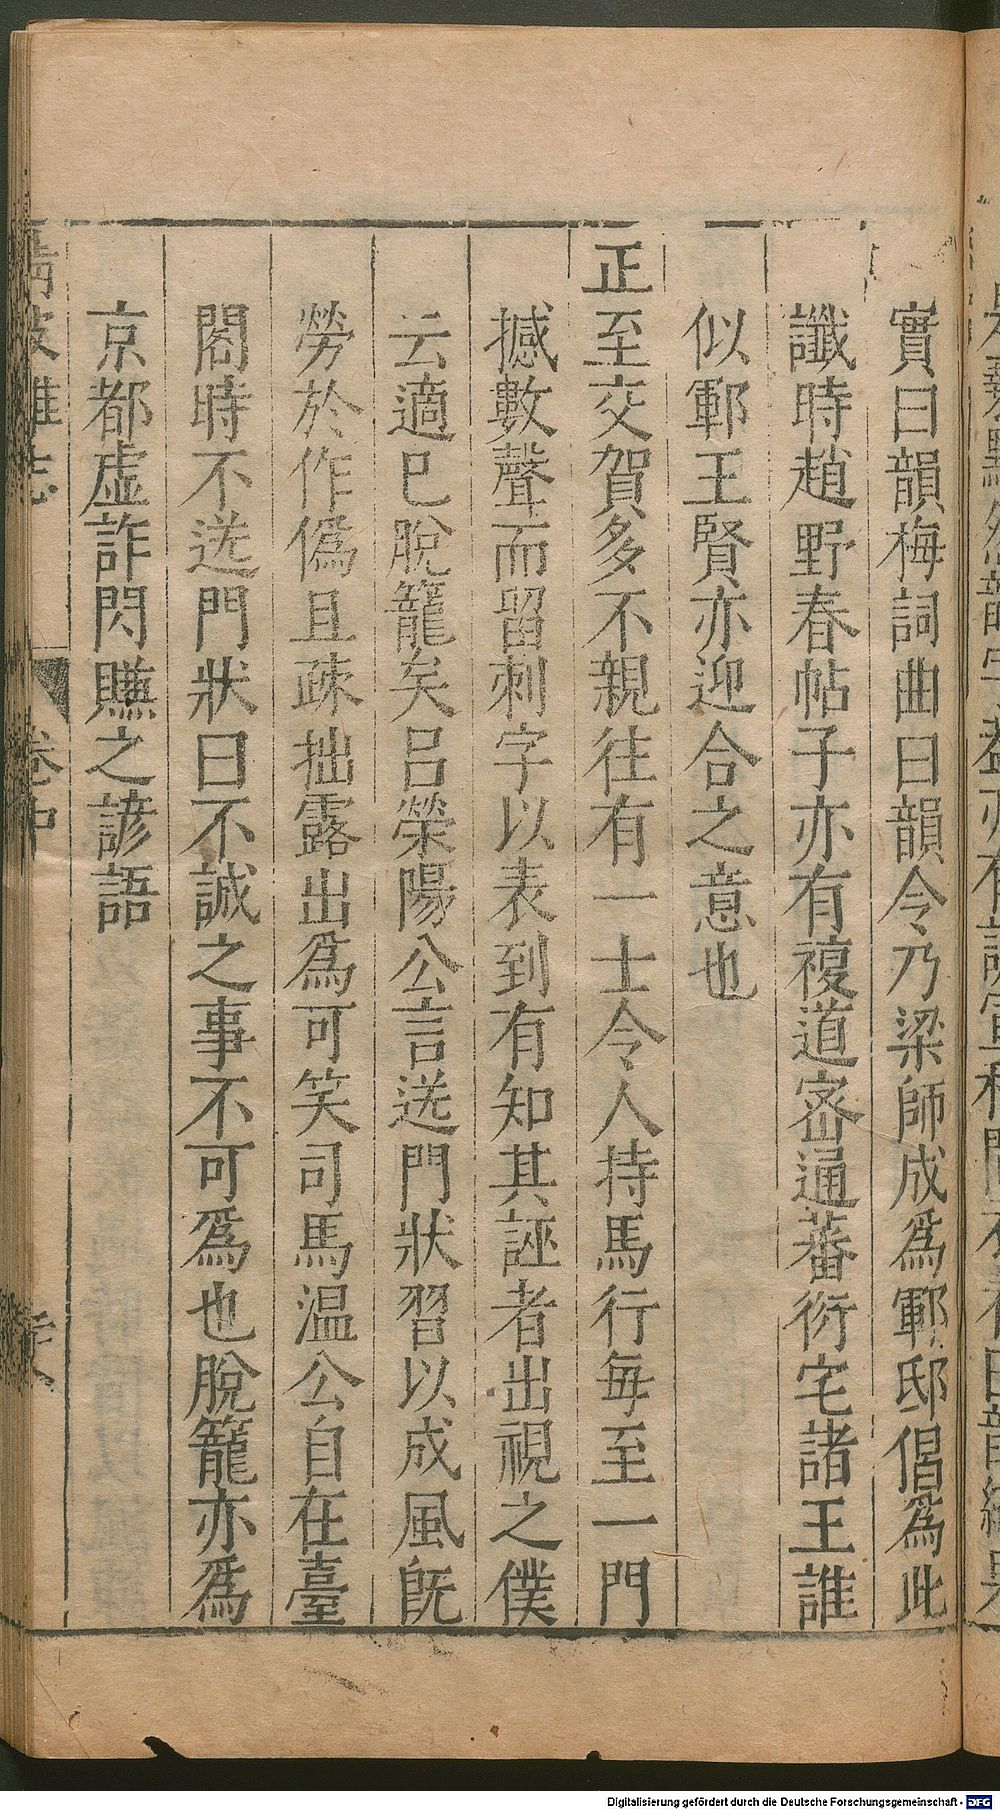 實曰韻梅詞曲曰韻令乃梁師成爲鄆邸倡爲此
讖時趙野春帖子亦有複道密通蕃衍宅諸王誰
似鄆王賢亦迎合之意也
正至交賀多不親往有一士令人持馬行每至一門
撼數聲而留刺字以表到有知其誣者出視之僕
云適已脫籠矣呂滎陽公言送門狀習以成風既
勞於作僞且疎拙露出爲可笑司馬温公自在臺
閣時不送門狀曰不誠之事不可爲也脫籠亦爲
京都虛詐閃賺之諺語
清波雜志 卷中
Digitalisierung gefördert durch die Deutsche Forschungsgemeinschaft - DFG